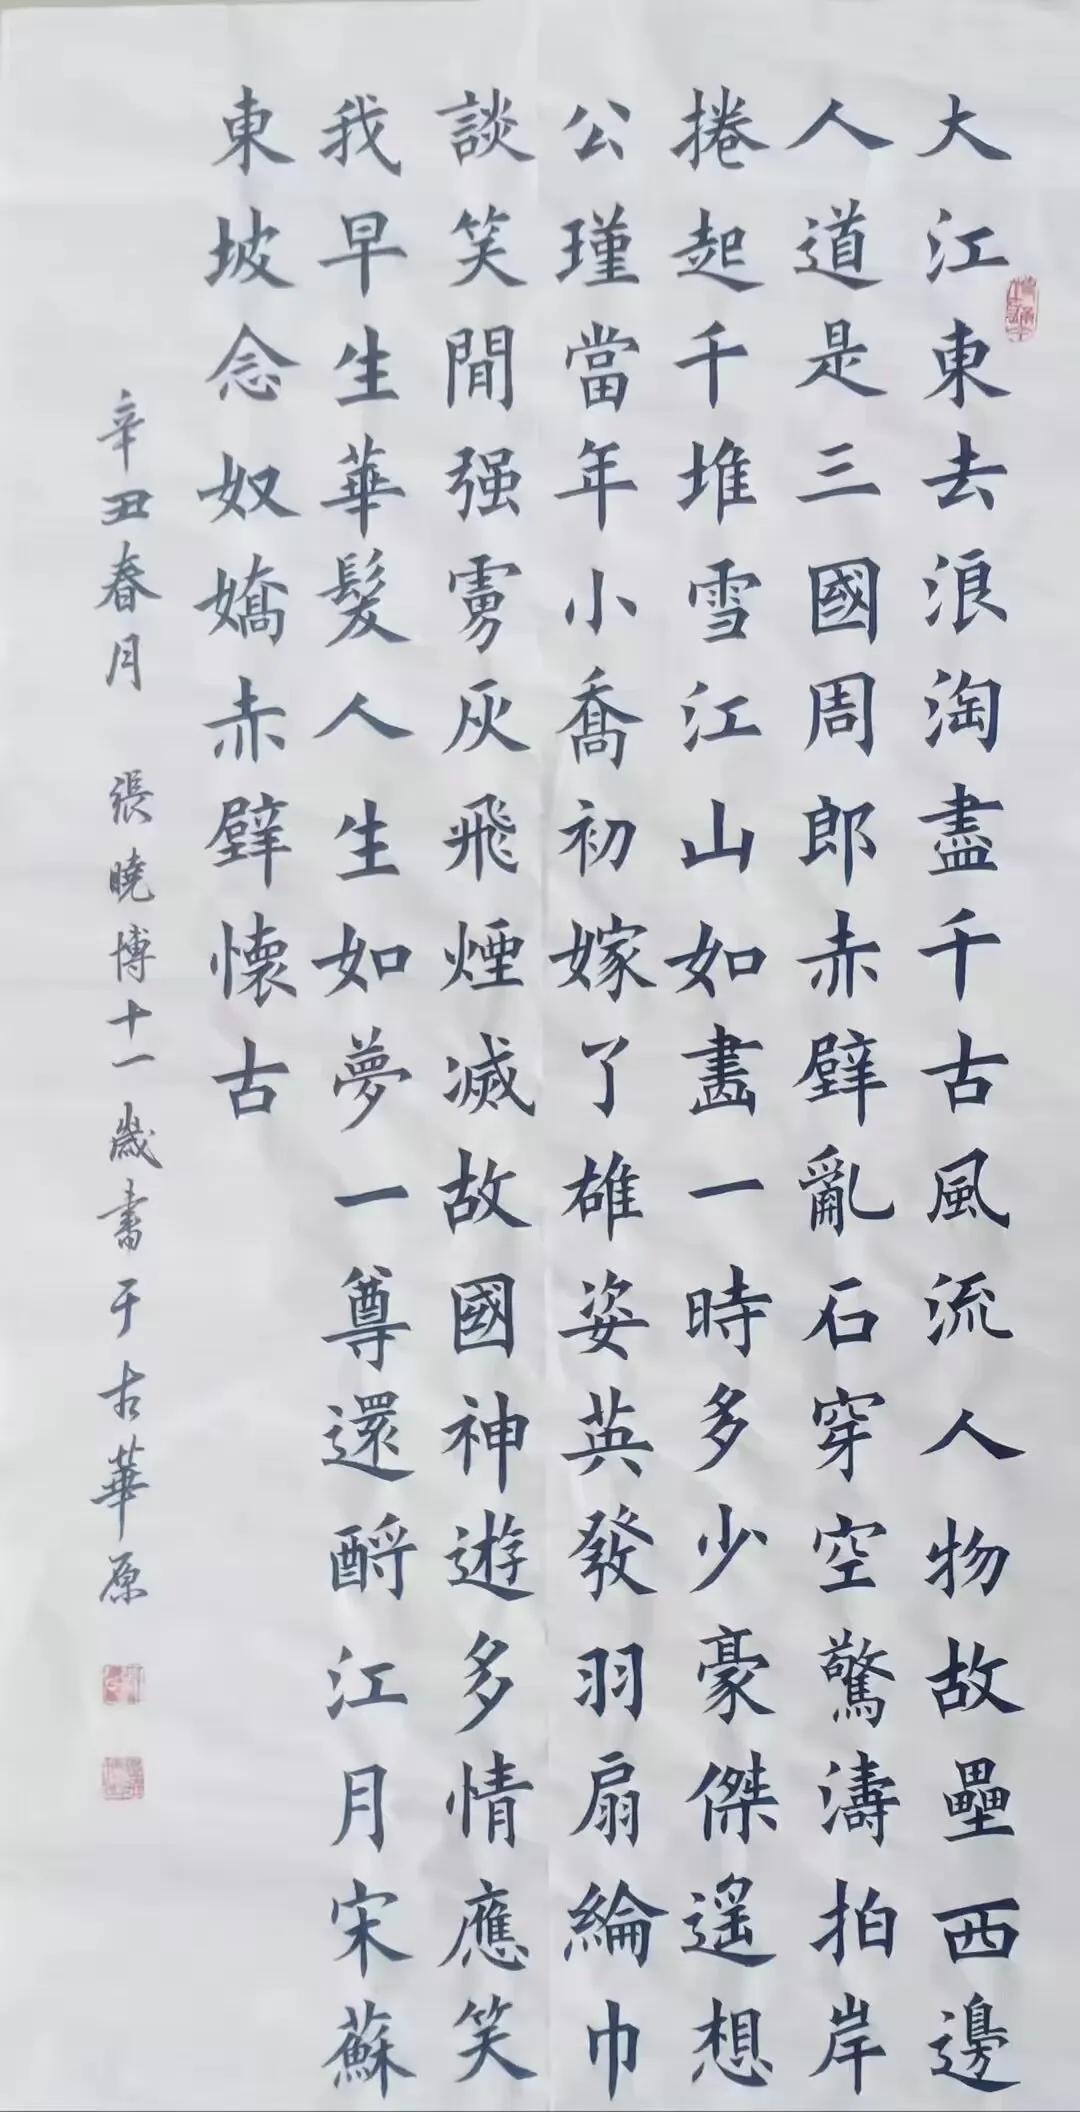 大江東去浪淘盡千古風流人物故壘西邊
人道是三國周郎赤壁亂石穿空驚濤拍岸
捲起千堆雪江山如畫一時多少豪傑遥想
公瑾當年小喬初嫁了雄姿英發羽扇綸巾
談笑間强虜灰飛煙滅故國神遊多情應笑
我早生華髮人生如夢一尊還酹江月宋蘇
東坡念奴嬌赤壁懷古
辛丑春月 張曉博十一歲書于古華原